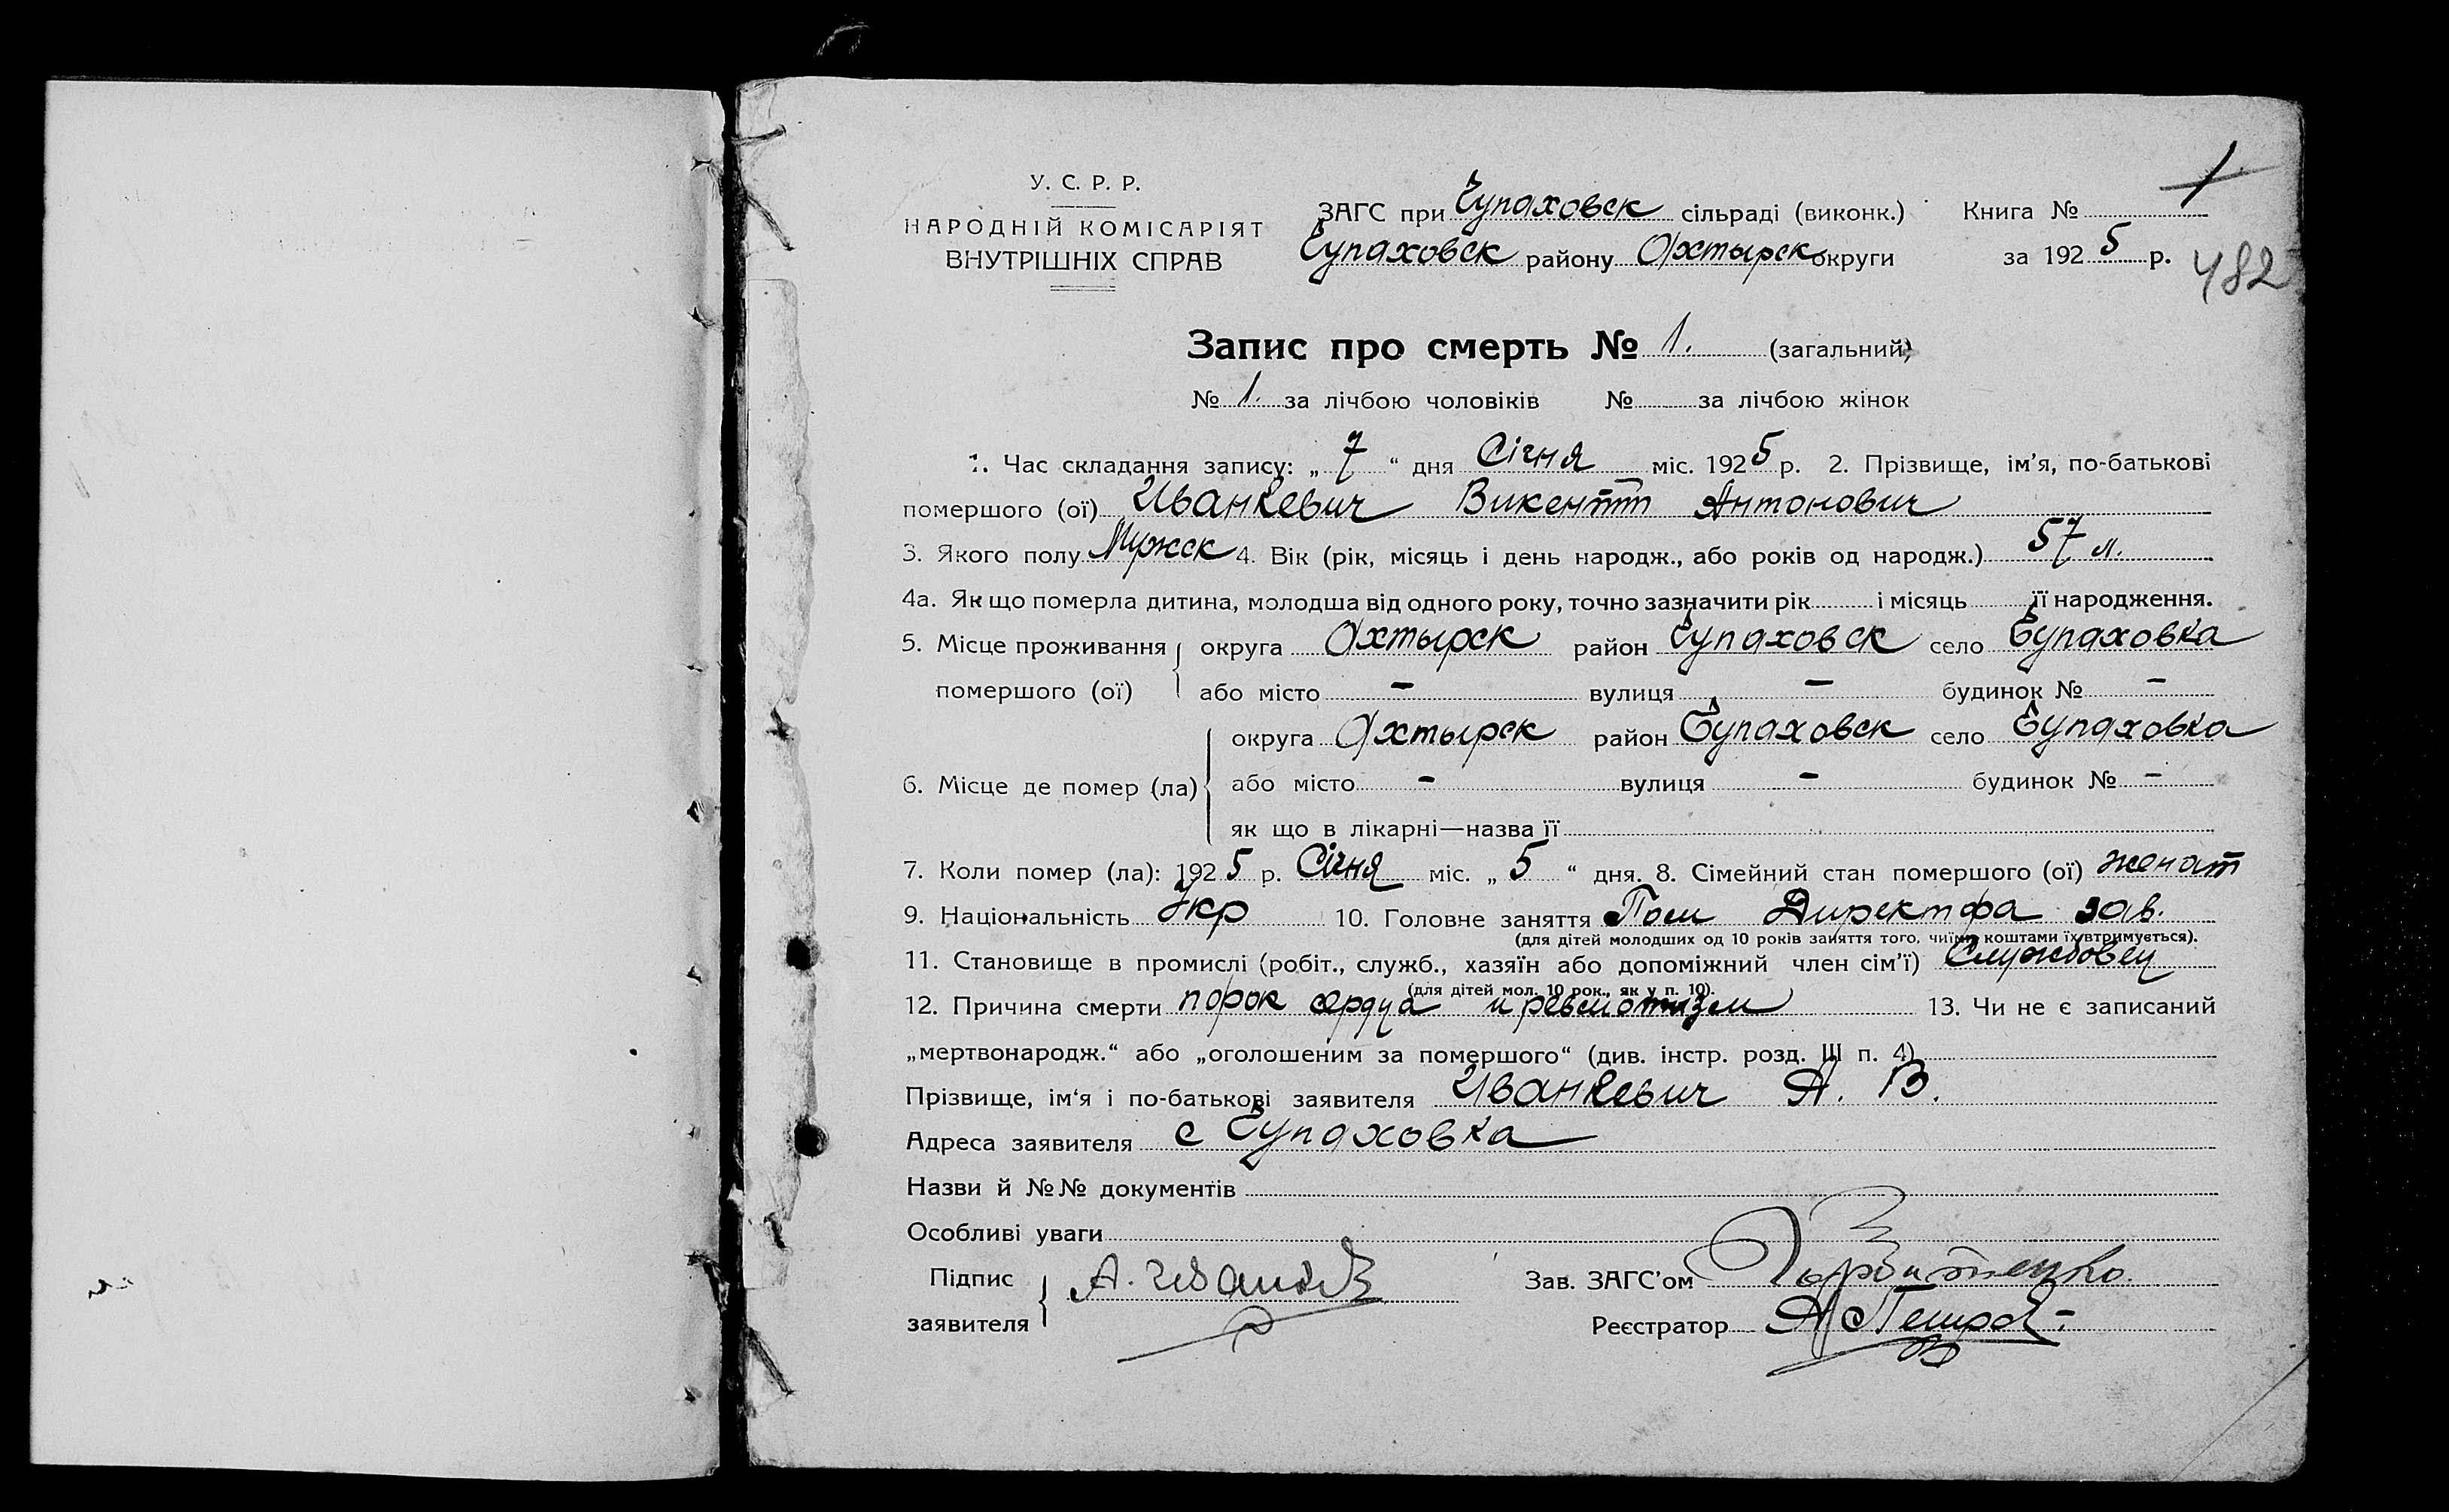 1
У. С. Р. Р.
НАРОДНІЙ КОМІСАРІЯТ
ВНУТРІШНІХ СПРАВ
ЗАГС при Чупаховск сільраді (виконк.) Книга №
Чупаховск району Охтырск округи за 1925 р.
482
Запис про смерть № 1. (загальний)
№ 1. за лічбою чоловіків № за лічбою жінок
1. Час складання запису: „7“ дня Січня міс. 1925 р. 2. Прізвище, ім'я, по-батькові
помершого (ої) Иванкевич Викентий Антонович
3. Якого полу Мужск 4. Вік (рік, місяць і день народж., або років од народж.) 57 л.
4а. Як що померла дитина, молодша від одного року, точно зазначити рік і місяць її народження.
5. Місце проживання округа Охтырск район Чупаховск село Чупаховка
помершого (ої) або місто - вулиця - будинок № -
округа Охтырск район Чупаховск село Чупаховка
6. Місце де помер (ла) або місто - вулиця - будинок № -
як що в лікарні—назва її
7. Коли помер (ла): 1925 р. Січня міс. „5“ дня. 8. Сімейний стан помершого (ої) женат
9. Національність Укр 10. Головне заняття Пом Директора зав.
(для дітей молодших од 10 років заняття того, чиїми коштами їх втримується).
11. Становище в промислі (робіт., служб., хазяїн або допоміжний член сім'ї) Службовец
(для дітей мол. 10 рок., як у п. 10).
12. Причина смерти порок сердца и ревматизм 13. Чи не є записаний
„мертвонародж.“ або „оголошеним за помершого“ (див. інстр. розд. III п. 4)
Прізвище, ім'я і по-батькові заявителя Иванкевич А. В.
Адреса заявителя с Чупаховка
Назви й №№ документів
Особливі уваги
Підпис А. Иванкев Зав. ЗАГС'ом
заявителя Реєстратор А Петров